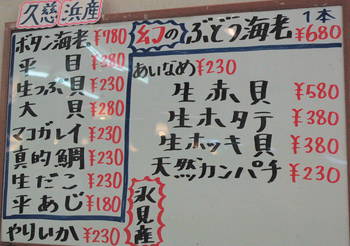 久慈浜産
ボタン海老 ¥780
平貝 ¥380
生つぶ貝 ¥230
大貝 ¥280
マコガレイ ¥230
真的鯛 ¥230
生だこ ¥230
平あじ ¥180
やりいか ¥230
幻のぶどう海老 1本 ¥680
あいなめ ¥230
生赤貝 ¥580
生ホタテ ¥380
生ホッキ貝 ¥380
天然カンパチ ¥230
氷見産